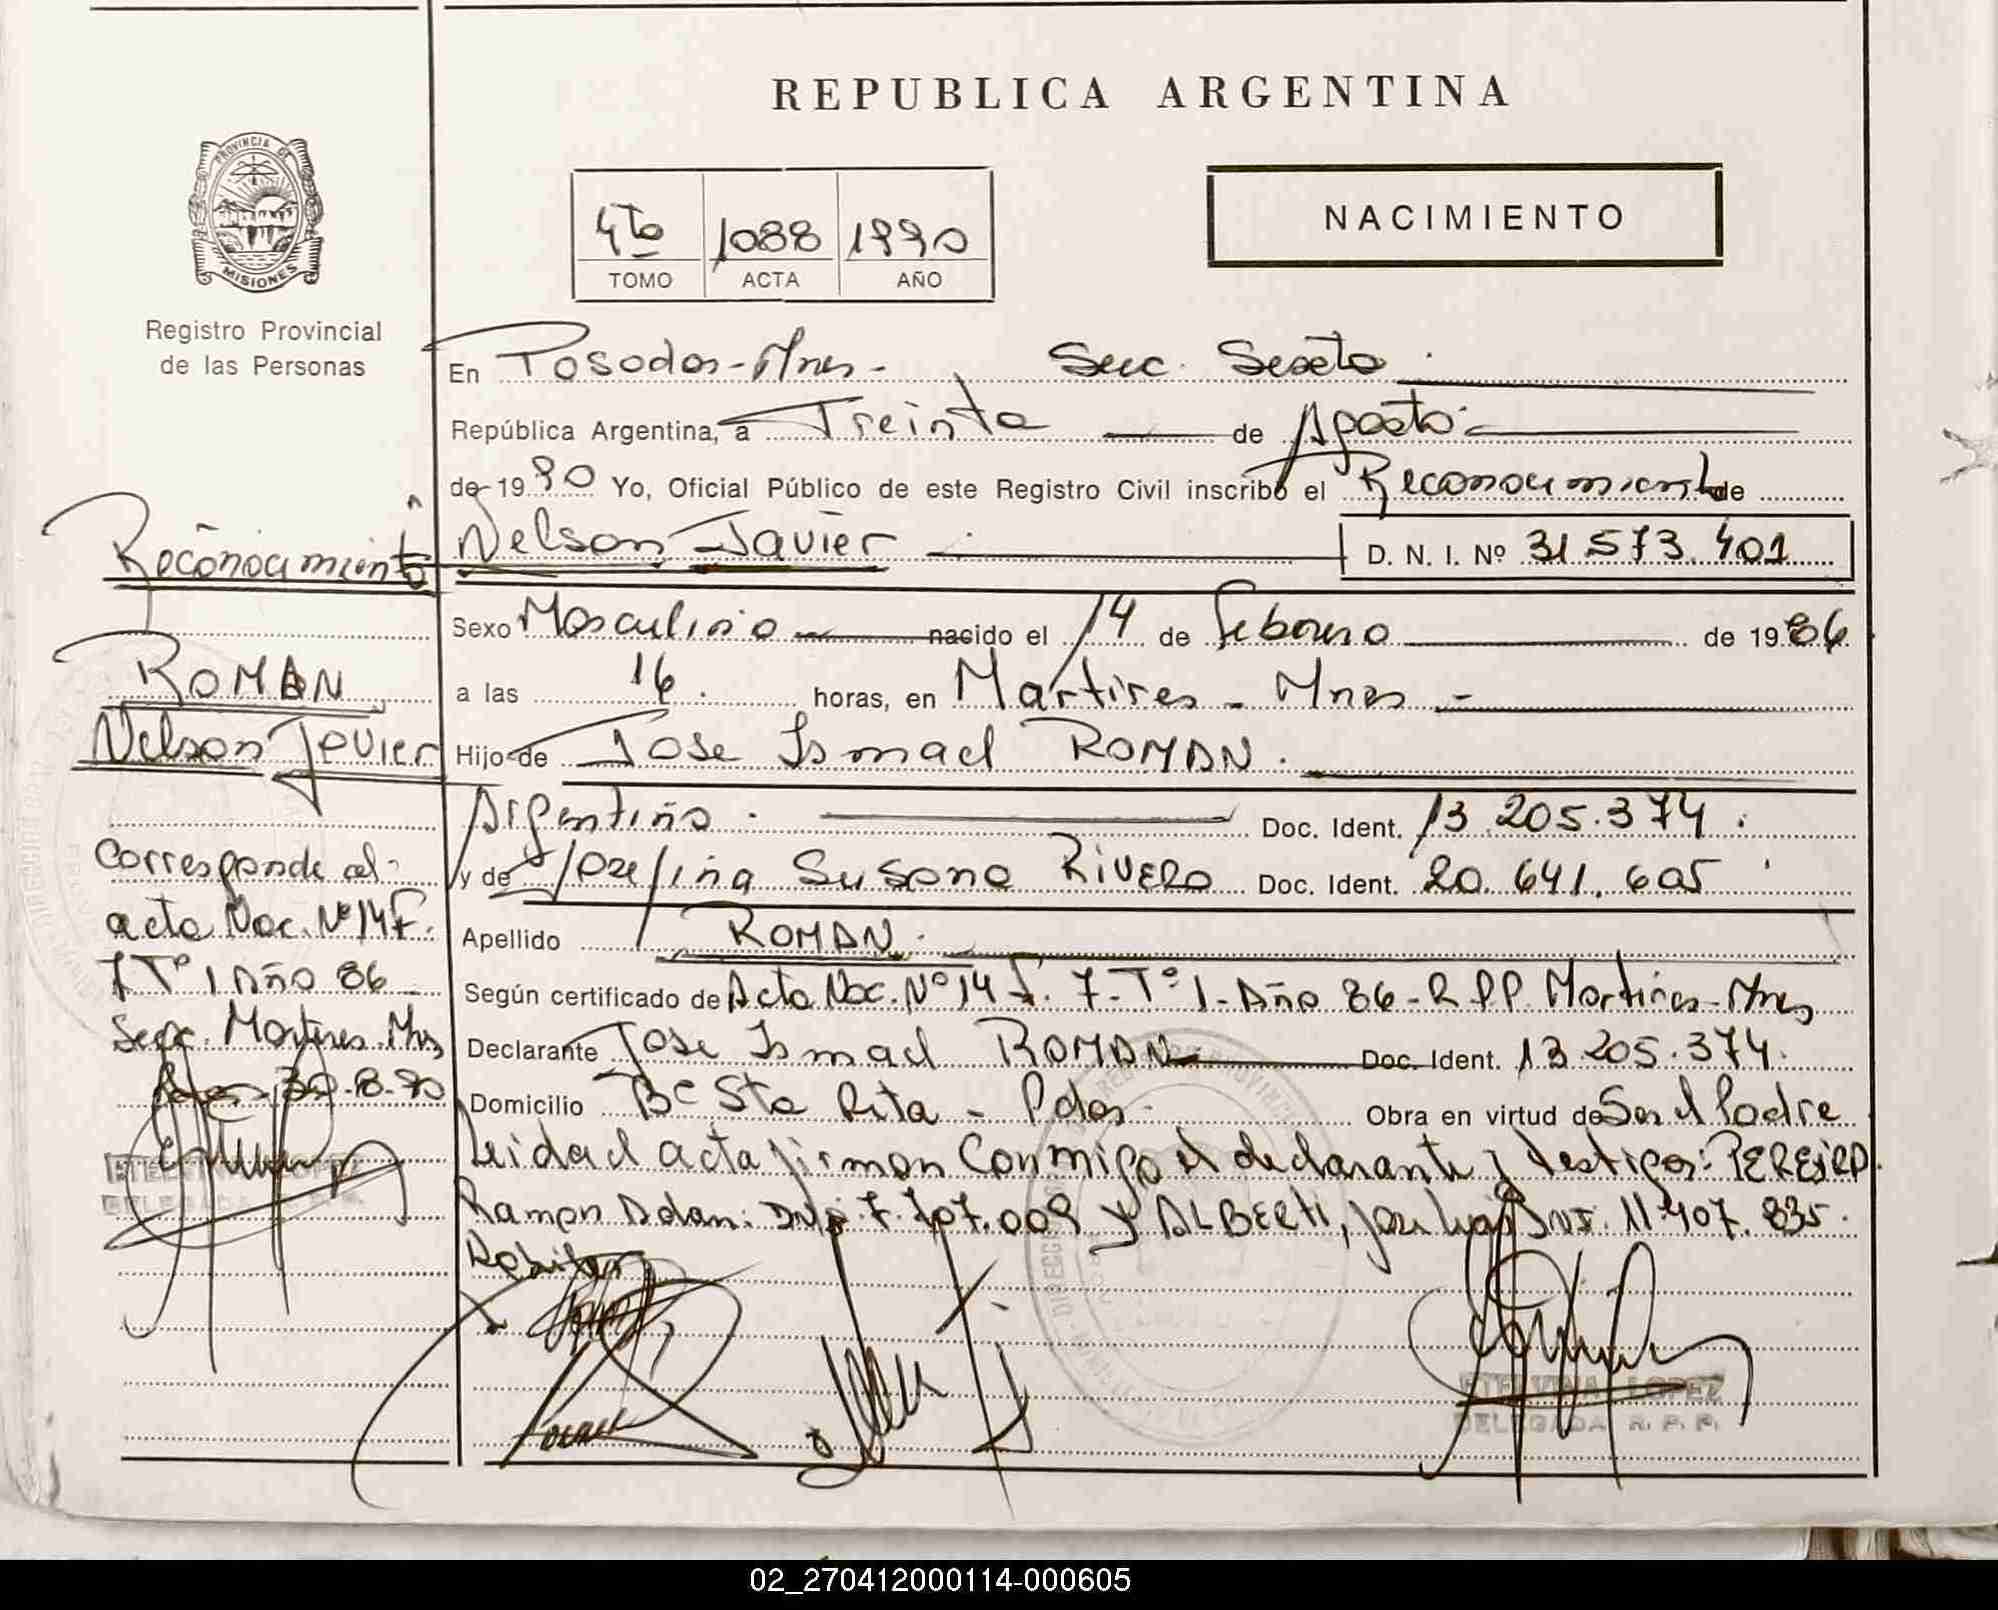 REPUBLICA ARGENTINA
PROVINCIA DE
MISIONES
Registro Provincial
de las Personas
4to 1088 1990
TOMO ACTA AÑO
NACIMIENTO
En Posadas-Mnes- Secc. Sexta
República Argentina, a Treinta de Agosto
de 1990 Yo, Oficial Público de este Registro Civil inscribo el Reconocimiento de
Nelson Javier D. N. I. Nº 31.573.401
Sexo Masculino nacido el 14 de Febrero de 1986
a las 16. horas, en Martires - Mnes -
Hijo de Jose Ismael ROMAN.
Argentino. Doc. Ident. 13.205.374.
y de Josefina Susana RIVERO Doc. Ident. 20.641.605
Apellido ROMAN.
Según certificado de Acta Nac. Nº 14 F. 7- Tº 1- Año 86- R.P.P. Martires- Mnes
Declarante Jose Ismael ROMAN Doc. Ident. 13.205.374.
Domicilio Bº Sta Rita - Pdas- Obra en virtud de Ser el Padre
Leida el acta firman conmigo el declarante y testigos: PEREIRA
Ramon Adan: DNI 7.707.009 y ALBERTI, Jose Luis DNI. 11.407.835.
Reconocimiento
ROMAN
Nelson Javier
Corresponde al
acta Nac. Nº 14 F.
7 Tº 1 Año 86
Secc. Martires. Mns
30-8-90
ETELVINA LOPEZ
DELEGADA R. P. P.
02_270412000114-000605